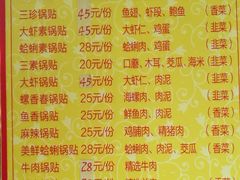 三珍锅贴 45元/份 鱼翅、虾段、鲍鱼 (香菜)
大虾素锅贴 45元/份 大虾仁、鸡蛋 (韭菜)
蛤蜊素锅贴 28元/份 蛤蜊肉、鸡蛋 (韭菜)
三素锅贴 20元/份 口蘑、木耳、茭瓜、海米 (韭菜)
大虾锅贴 45元/份 大虾仁、肉泥 (韭菜)
螺香春锅贴 28元/份 海螺肉、肉泥 (韭菜)
鱼香锅贴 25元/份 鲜鱼肉、肉泥 (韭菜)
麻辣锅贴 25元/份 鸡脯肉、精猪肉 (香菜)
美鲜蛤蜊锅贴 28元/份 蛤蜊肉、肉泥、茭瓜 (香菜)
牛肉锅贴 28元/份 精选牛肉 (香菜)